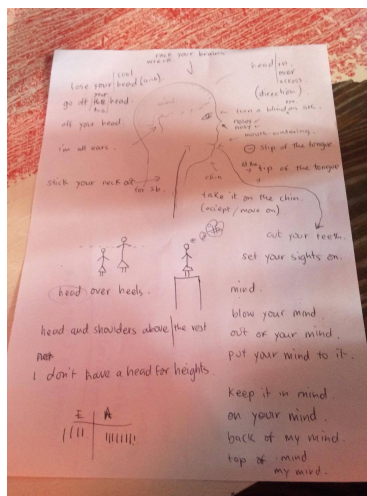 rack your brains
lose your cool
head (inf.)
go off your head.
off your head.
I'm all ears.
stick your neck out
for sb.
head
over
across
(direction)
turn a blind eye
mouth-watering
slip of the tongue
tip of the tongue
chin
take it on the chin
(accept / move on)
cut your teeth.
set your sights on.
head over heels.
head and shoulders above the rest
I don't have a head for heights.
mind.
blow your mind.
out of your mind.
put your mind to it.
keep it in mind.
on your mind.
back of my mind.
top of mind
my mind.
E A